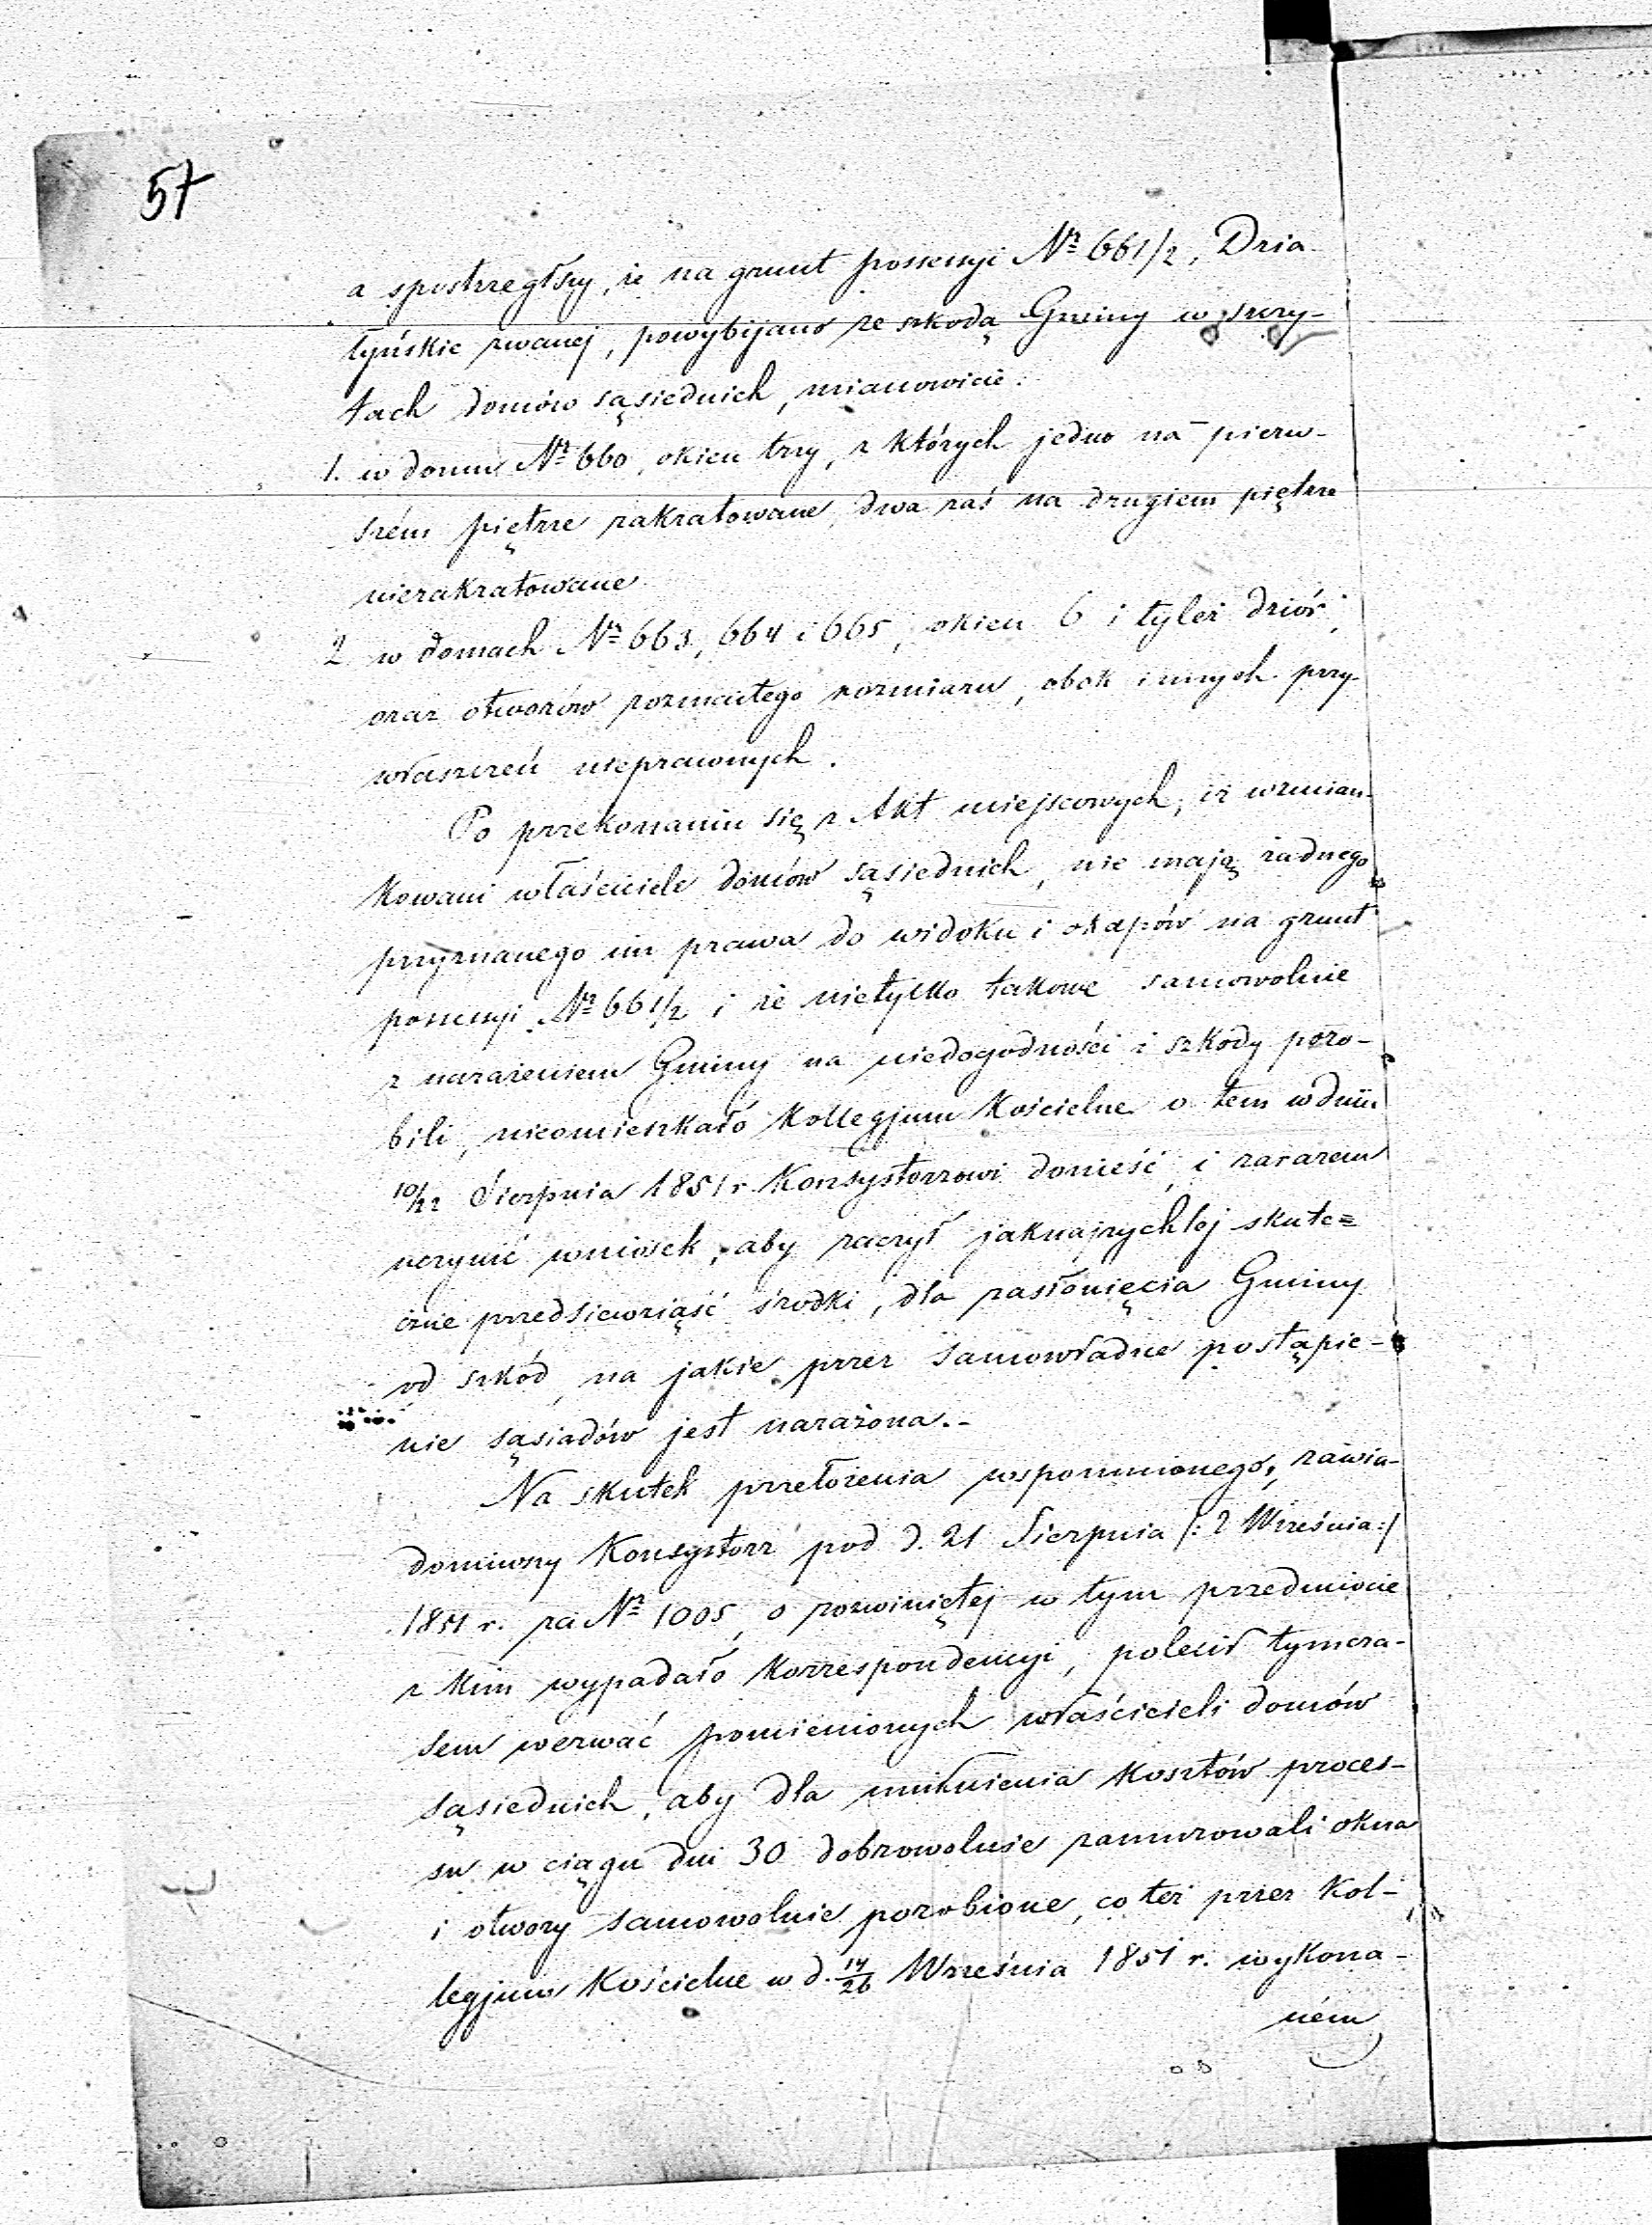 57
a spostrzegłszy, że na grunt possessyi Nr 661/2, Dzia
łyńskie zwanej, powybijano ze szkodą Gminy w szczy-
tach domów sąsiednich, mianowicie:
1. w domu Nr 660, okien trzy, z których jedno na pierw-
szém piętrze zakratowane, dwa zaś na drugiem piętrze
niezakratowane
2 w domach Nr 663, 664 i 665, okien 6 i tyleż dziór,
oraz otworów rozmaitego rozmiaru, obok innych przy-
właszczeń nieprawnych.
Po przekonaniu się z Akt miejscowych, iż wzmian-
kowani właściciele domów sąsiednich, nie mają żadnego
przyznanego im prawa do widoku i okapów na grunt
possessyi Nr 661/2 i że nietylko takowe samowolnie
z narażeniem Gminy na niedogodności i szkody poro-
bili, nieomieszkało Kollegjum Kościelne o tem w dniu
10/22 Sierpnia 1851 r. Konsystorzowi donieść, i zarazem
uczynić wniosek, aby raczył jaknajrychlej skute=
cznie przedsiewziąść środki, dla zasłonięcia Gminy
od szkód, na jakie przez samowładne postąpie-
nie sąsiadów jest narażona.-
Na skutek przełożenia wspomnionego, zawia-
domiwszy Konsystorz pod d. 21 Sierpnia /: 2 Września :/
1851 r. za Nr 1005, o rozwiniętej w tym przedmiocie
z kim wypadało korrespondencyi, polecił tymcza-
sem wezwać pomienionych właścicieli domów
sąsiednich, aby dla uniknienia kosztów proces-
su w ciągu dni 30 dobrowolnie zamurowali okna
i otwory samowolnie porobione, co też przez Kol-
legjum Kościelne w d. 14/26 Września 1851 r. wykona-
ném